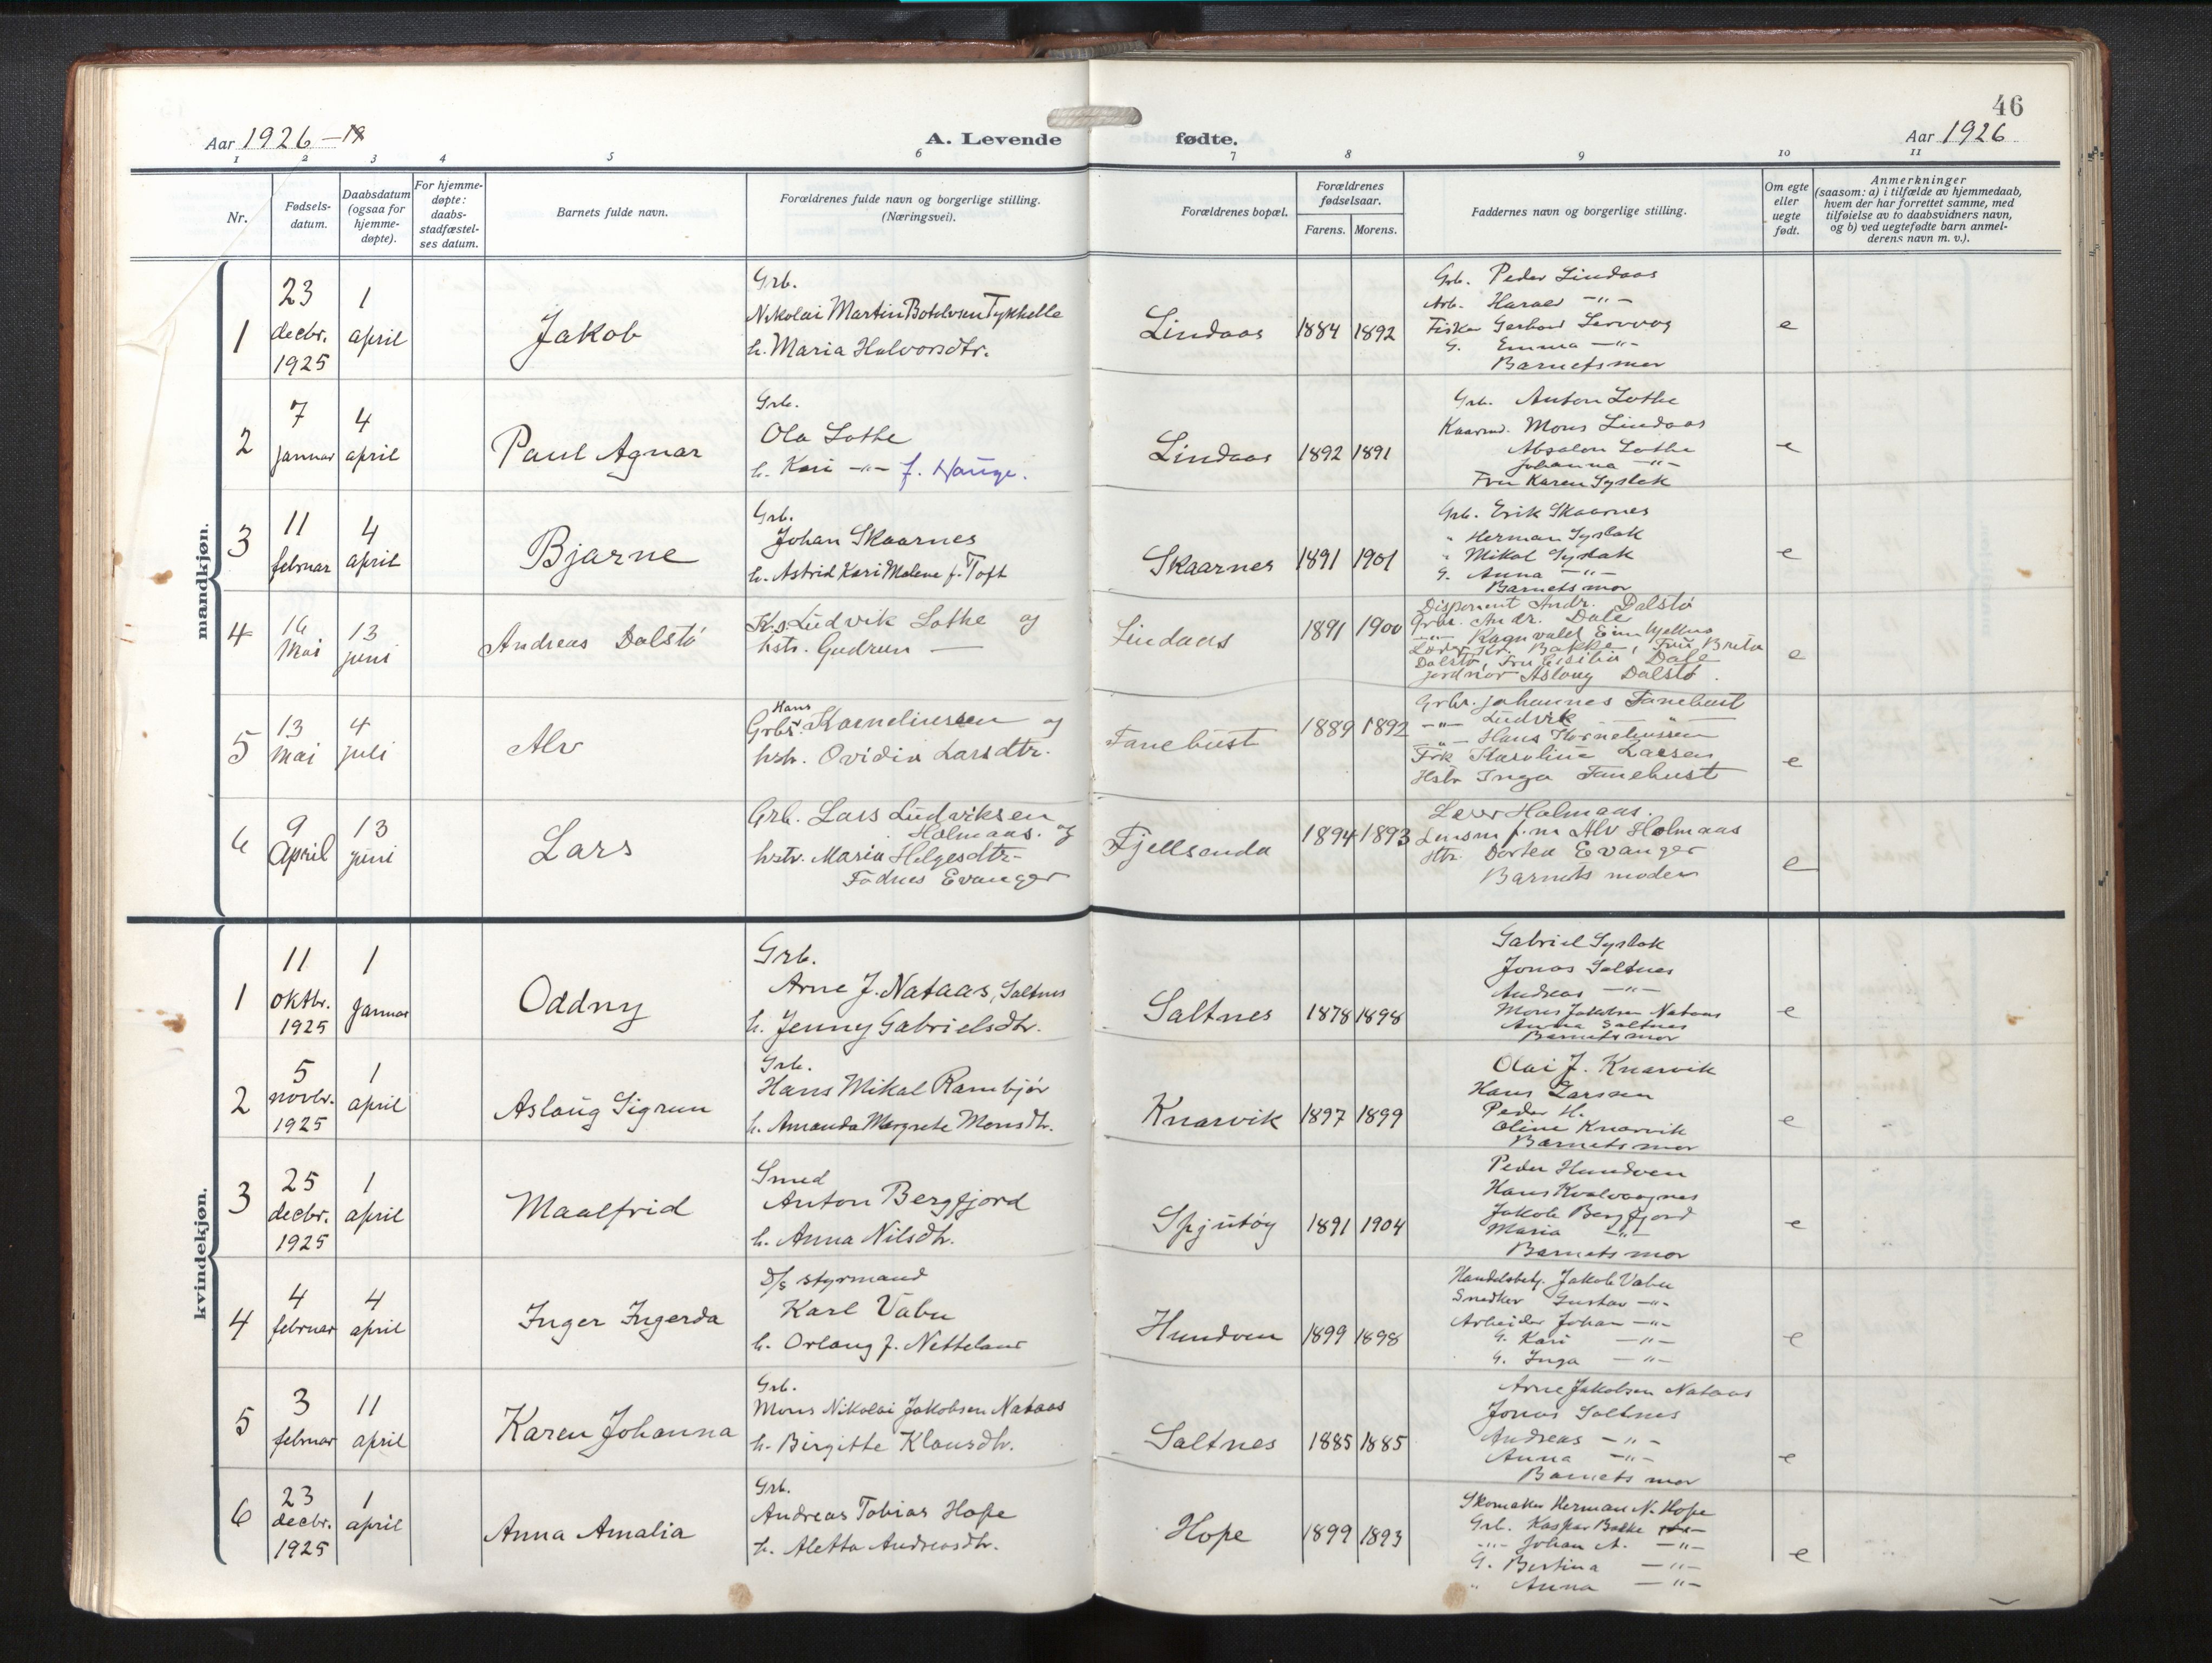 46
Aar 1926
A. Levende
fødte.
Aar 1926
1 2 3 4 5 6 7 8 9 10 11
Nr.
Fødsels-
datum.
Daabsdatum
(ogsaa for
hjemme-
døpte).
For hjemme-
døpte:
daabs-
stadfæstel-
ses datum.
Barnets fulde navn.
Forældrenes fulde navn og borgerlige stilling.
(Næringsvei).
Forældrenes bopæl.
Forældrenes
fødselsaar.
Farens. Morens.
Faddernes navn og borgerlige stilling.
Om egte
eller
uegte
født.
Anmerkninger
(saasom: a) i tilfælde av hjemmedaab,
hvem der har forrettet samme, med
tilføielse av to daabsvidners navn,
og b) ved uegtefødte barn anmel-
derens navn m. v.).
mandkjøn.
1
23
decbr.
1925
1
april
Jakob
Grb.
Nikolai Martin Botolvsen Tykkhelle
h. Maria Halvorsdtr.
Lindaas 1884 1892
Grb. Peder Lindaas
Arb. Harald -"-
Fisker Gerhard
G. Emma -"-
Barnets mor
e
2
7
januar
4
april
Paul Agnar
Grb.
Ola Lothe
h. Kari -"- f. Hauge.
Lindaas 1892 1891
Grb. Anton Lothe
Mons Lindaas
Absalon Lothe
Johanna -"-
Fru Karen Syslak
e
3
11
februar
4
april
Bjarne
Grb.
Johan Skaarnes
h. Astrid Kari Malene f. Toft
Skaarnes 1891 1901
Grb. Erik Skaarnes
" Herman Syslak
" Mikal Syslak
G. Anna -"-
Barnets mor
e
4
16
Mai
13
juni
Andreas Dalstø
K.s. Ludvik Lothe og
hstr. Gudrun —
Lindaas 1891 1900
Disponent Andr. Dalstø
Grbr. Andr. Dale
-"- Ragnvald
Kr. Bakke, Fru Breta
Dalstø, Fru Dale
jordmor Aslaug Dalstø.
e
5
13
Mai
4
juli
Alv
Hans
Grbr. Korneliussen og
hstr. Ovidia Larsdtr.
Fanebust 1889 1892
Grbr. Johannes Fanebust
-"- Ludvik — " —
-"- Hans Korneliussen
Frk Karoline Larsen
Hstr Inga Fanebust
e
6
9
April
13
juni
Lars
Grb. Lars Ludviksen
Holmaas. og
hstr. Maria Helgesdtr-
Fadnes Evanger
Fjellsenda 1894 1893
Holmaas.
Lensm f.m Alv Holmaas
Htr. Dortea Evanger
Barnets moder
e
kvindekjøn.
1
11
oktbr.
1925
1
Januar
Oddny
Grb.
Arne J. Nataas, Saltnes
h. Jenny Gabrielsdtr.
Saltnes 1878 1898
Gabriel Syslak
Jonas Saltnes
Andreas -"-
Mons Jakobsen Nataas
Anna Saltnes
Barnets mor
e
2
5
novbr.
1925
1
april
Aslaug Sigrun
Grb.
Hans Mikal Rambjør
h. Amanda Margrete Monsdtr.
Knarvik 1897 1899
Olai J. Knarvik
Hans Larsen
Peder H.
Oline Knarvik
Barnets mor
e
3
25
decbr.
1925
1
april
Maalfrid
Smed
Anton Bergfjord
h. Anna Nilsdtr.
Spjutøy 1891 1904
Peder Hundven
Hans Kvalvaagnes
Jakob Bergfjord
Maria -"-
Barnets mor
e
4
4
februar
4
april
Inger Ingerda
D/s styrmand
Karl Vabu
h. Orlaug f. Netteland
Hundven 1899 1898
Handelsbetj. Jakob Vabu
Snedker Gustav -"-
Arbeider Johan -"-
G. Kari -"-
G. Inga -"-
e
5
3
februar
11
april
Karen Johanna
Grb.
Mons Nikolai Jakobsen Nataas
h. Birgitte Klausdtr.
Saltnes 1885 1885
Arne Jakobsen Nataas
Jonas Saltnes
Andreas -"-
Anna -"-
Barnets mor
e
6
23
decbr.
1925
1
april
Anna Amalia
Grb.
Andreas Tobias Hope
h. Aletta Andreasdtr.
Hope 1899 1893
Skomaker Herman N. Hope
Grb. Kaspar Bakke
-"- Johan A. -"-
G. Bertina -"-
" Anna -"-
e